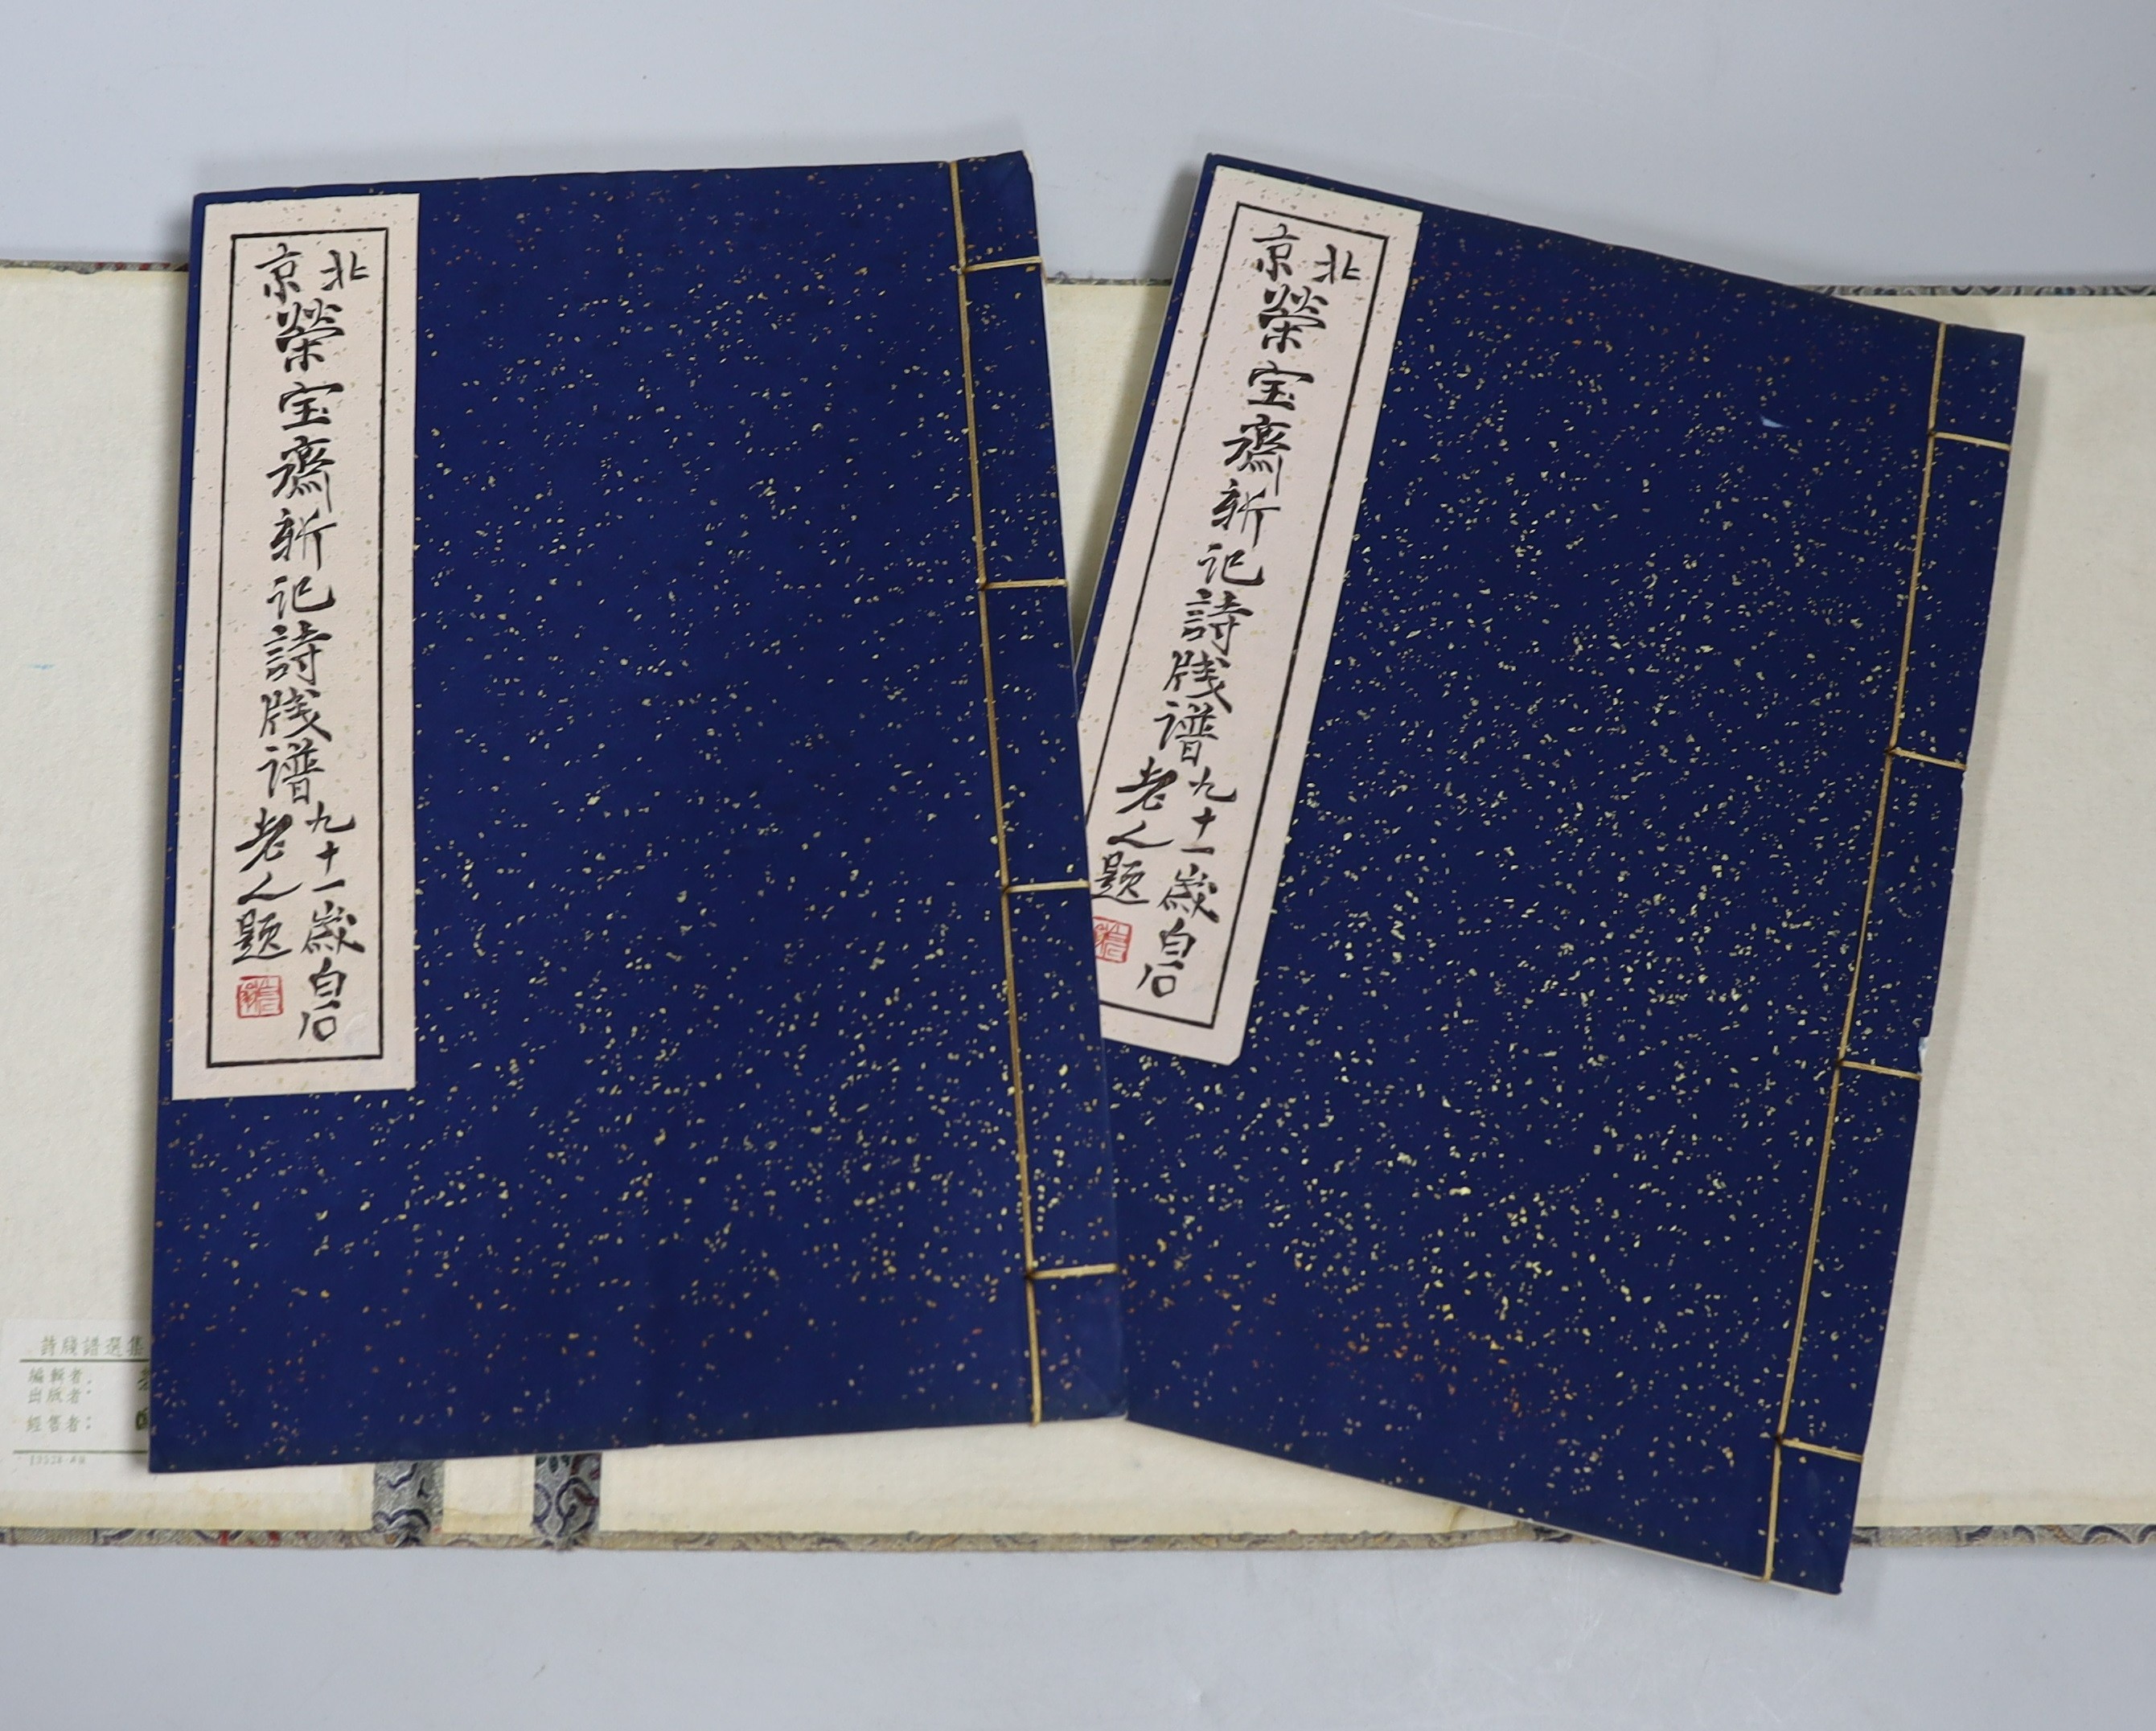 北京
榮宝齋新记詩牋谱
九十一歲白石
老人题
北京
榮宝齋新记詩牋谱
九十一歲白石
老人题
詩牋譜選集
編輯者:
出版者:
經售者: